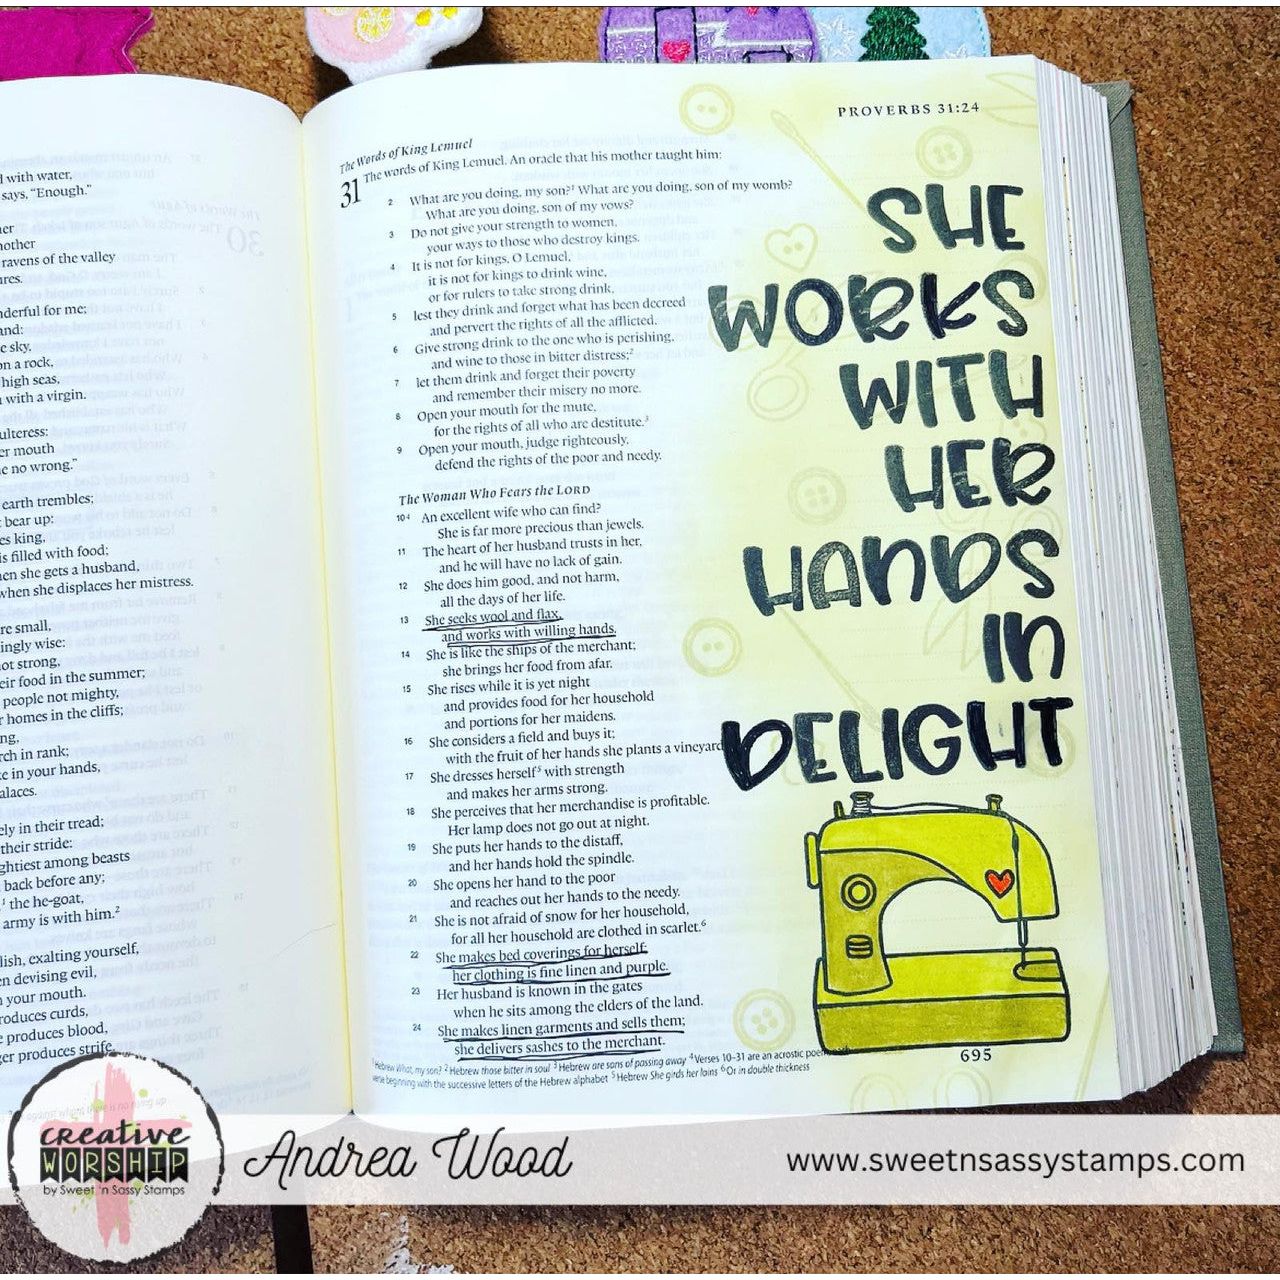 d with water,
says, “Enough.”
other
ravens of the valley
nderful for me;
and:
e sky,
on a rock,
high seas,
with a virgin.
ulteress:
er mouth
e no wrong.”
earth trembles;
bear up:
es king,
is filled with food;
en she gets a husband,
when she displaces her mistress.
re small,
ingly wise:
ot strong,
eir food in the summer;
people not mighty,
r homes in the cliffs;
ng,
rch in rank;
e in your hands,
alaces.
ely in their tread;
their stride:
ghtiest among beasts
back before any;
¹ the he-goat,
army is with him.²
lish, exalting yourself,
en devising evil,
your mouth.
roduces curds,
produces blood,
ger produces strife.
PROVERBS 31:24
The Words of King Lemuel
31 The words of King Lemuel. An oracle that his mother taught him:
2 What are you doing, my son?¹ What are you doing, son of my womb?
What are you doing, son of my vows?
3 Do not give your strength to women,
your ways to those who destroy kings.
4 It is not for kings, O Lemuel,
it is not for kings to drink wine,
or for rulers to take strong drink,
5 lest they drink and forget what has been decreed
and pervert the rights of all the afflicted.
6 Give strong drink to the one who is perishing,
and wine to those in bitter distress;²
7 let them drink and forget their poverty
and remember their misery no more.
8 Open your mouth for the mute,
for the rights of all who are destitute.³
9 Open your mouth, judge righteously,
defend the rights of the poor and needy.
The Woman Who Fears the LORD
10⁴ An excellent wife who can find?
She is far more precious than jewels.
11 The heart of her husband trusts in her,
and he will have no lack of gain.
12 She does him good, and not harm,
all the days of her life.
13 She seeks wool and flax,
and works with willing hands.
14 She is like the ships of the merchant;
she brings her food from afar.
15 She rises while it is yet night
and provides food for her household
and portions for her maidens.
16 She considers a field and buys it;
with the fruit of her hands she plants a vineyard
17 She dresses herself⁵ with strength
and makes her arms strong.
18 She perceives that her merchandise is profitable.
Her lamp does not go out at night.
19 She puts her hands to the distaff,
and her hands hold the spindle.
20 She opens her hand to the poor
and reaches out her hands to the needy.
21 She is not afraid of snow for her household,
for all her household are clothed in scarlet.⁶
22 She makes bed coverings for herself;
her clothing is fine linen and purple.
23 Her husband is known in the gates
when he sits among the elders of the land.
24 She makes linen garments and sells them;
she delivers sashes to the merchant.
¹ Hebrew What, my son? ² Hebrew those bitter in soul ³ Hebrew are sons of passing away ⁴ Verses 10–31 are an acrostic poem
verse beginning with the successive letters of the Hebrew alphabet ⁵ Hebrew She girds her loins ⁶ Or in double thickness
SHE
WORKS
WITH
HER
HANDS
IN
DELIGHT
695
creative
WORSHIP
by Sweet 'n Sassy Stamps
Andrea Wood
www.sweetnsassystamps.com